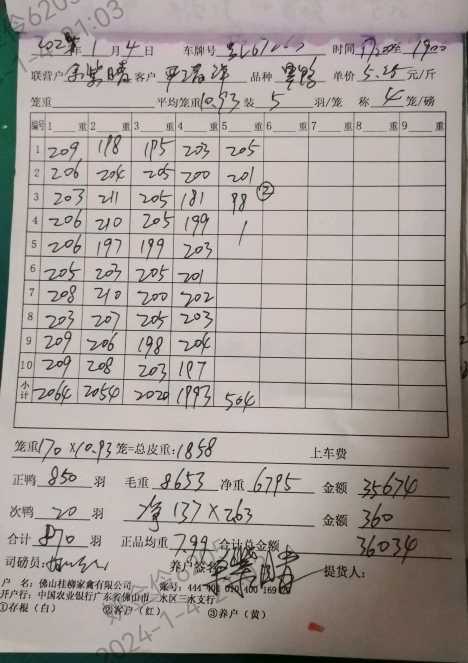 2024年1月4日 车牌号 时间 17:20至19:00
联营户 客户 品种 单价 5.25 元/斤
笼重 平均笼重10.93 装 5 羽/笼 称 4 笼/磅
编号 1 重 2 重 3 重 4 重 5 重 6 重 7 重 8 重 9 重
1 209 198 195 203 205
2 206 204 205 200 201
3 203 211 205 181 98 ②
4 206 210 205 199 1
5 206 197 199 203
6 205 203 205 201
7 208 210 200 202
8 203 207 205 203
9 209 206 198 204
10 209 208 203 197
小计 2064 2054 2020 1993 504
笼重170×10.93笼=总皮重:1858 上车费
正鸭 850 羽 毛重 8653 净重 6795 金额 35674
次鸭 20 羽 净 137×2.63 金额 360
合计 870 羽 正品均重 7.99 合计总金额 36034
司磅员: 养户签 提货人:
户 名：佛山桂柳家禽有限公司 账号：444
开户行：中国农业银行广东省佛山市三水区三水支行
①存根（白） ②客户（红） ③养户（黄）